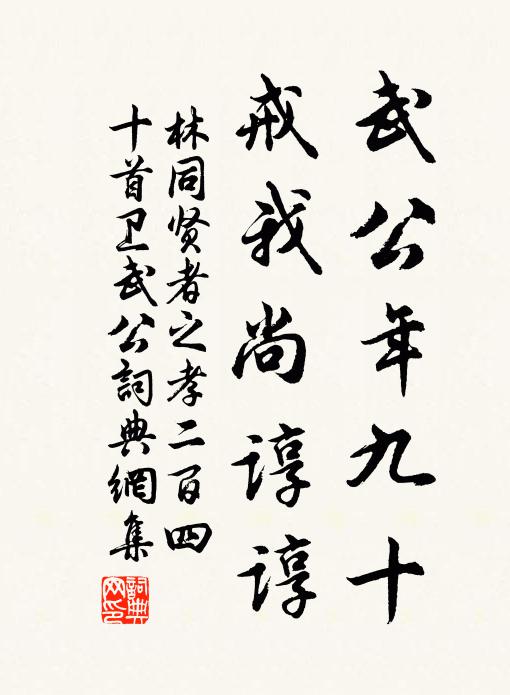 武公年九十
戒我尚谆谆
林同贤者之孝二百四
十首卫武公詞典網集
詞典
网印